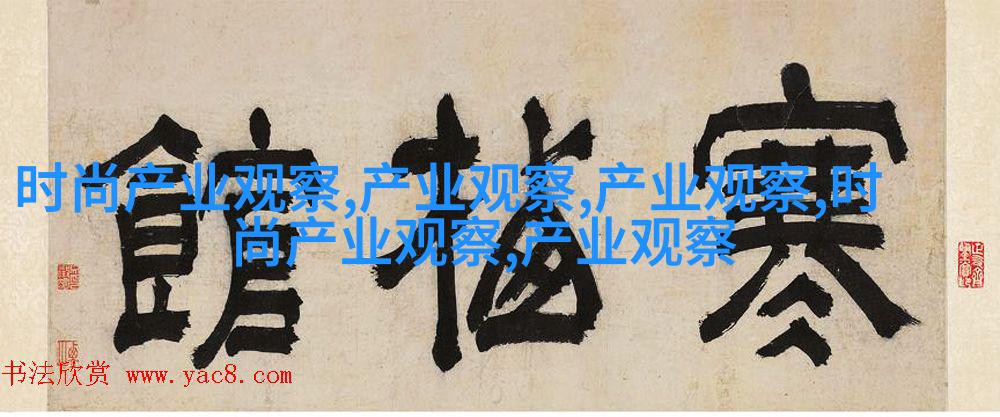 寒梅館
时尚产业观察,产业观察,产业观察,时
尚产业观察,产业观察
书法欣赏 www.yac8.com